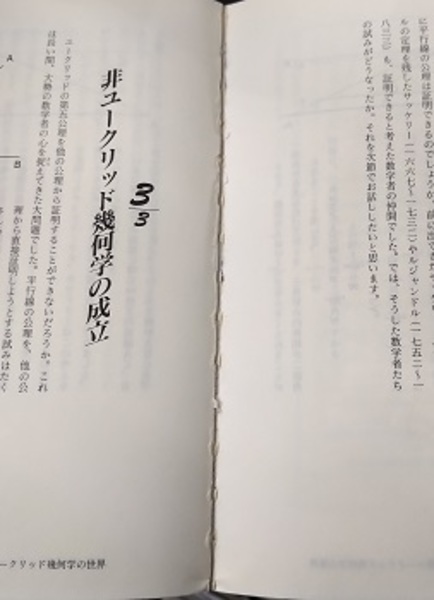 に平行線の公理は証明できるのでしょうか。前に出てきた
ルの定理を残したサッケリー(一六六七〜一七三三)やルジャンドル(一七五二〜一
八三三)も、証明できると考えた数学者の仲間でした。では、そうした数学者たち
の試みがどうなったか。それを次節でお話ししたいと思います。
3
3
非ユークリッド幾何学の成立
ユークリッドの第五公理を他の公理から証明することができないだろうか。これ
は長い間、大勢の数学者の心を捉えてきた大問題でした。平行線の公理を、他の公
理から直接証明しようとする試みはたく
A
B
ークリッド幾何学の世界